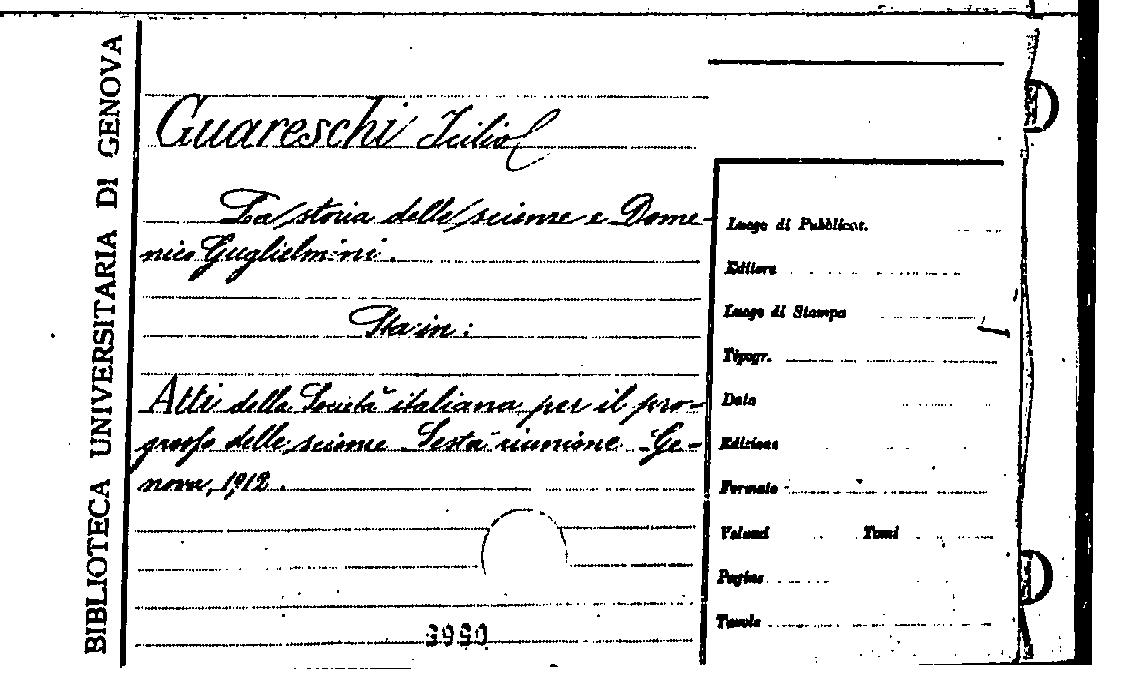 BIBLIOTECA UNIVERSITARIA DI GENOVA
Guareschi Icilio
La storia delle scienze e Dome-
nico Guglielmini.
Sta in:
Atti della Società italiana per il pro-
gresso delle scienze Sesta riunione Ge-
nova, 1912.
Luogo di Pubblicaz.
Editore
Luogo di Stampa
Tipogr.
Data
Edizione
Formato
Volumi Tomi
Pagine
Tavole